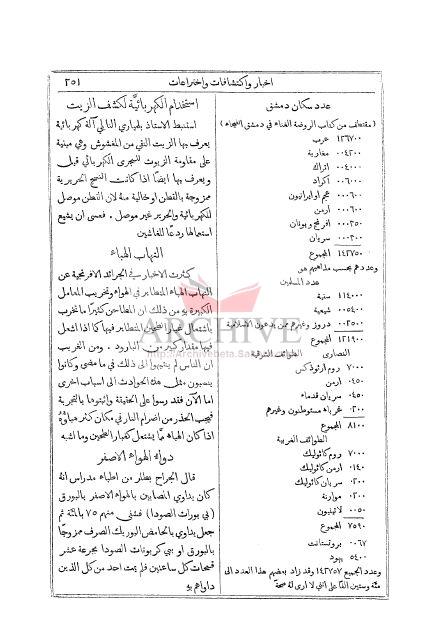 اخبار واكتشافات واختراعات
٢٥١
عدد سكان دمشق
(مقتطف من كتاب الروضة الغناء في دمشق الفيحاء)
١٢٦٧٠٠ عرب
٠٠٤٢٠٠ مغاربة
٠٠٤٠٠٠ اتراك
٠٠٦٠٠٠ اكراد
٠٠٠٦٠٠ عجم او ايرانيون
٠٠٠٦٠٠ ارمن
٠٠٠٣٥٠ افرنج ويونان
٠٠٠٣٠٠ سريان
١٤٢٧٥٠ المجموع
وعددهم بحسب مذاهبهم هو
عدد المسلمين
١١٤٠٠٠ سنية
٠٠٥٤٠٠ شيعية
٠٠٢٥٠٠ دروز وغيرهم ممن يدعون الاسلامية
١٢١٩٠٠ المجموع
النصارى الطوائف الشرقية
٧٠٠٠ روم ارثوذكس
٠٤٥٠ ارمن
٠٤٥٠ سريان قدماء
٠٢٠٠ غرباء مستوطنون وغيرهم
٨١٠٠ المجموع
الطوائف الغربية
٧٠٠٠ روم كاثوليك
٠١٤٠ ارمن كاثوليك
٠٢٠٠ سريان كاثوليك
٠٢٠٠ موارنة
٠٠٥٠ لاتينيون
٧٥٩٠ المجموع
٠٠٦٧ بروتستانت
٥٤٠٠ يهود
وعدد الجميع ١٤٢٧٥٧ وقد زاد بعضهم هذا العدد الى
مئة وستين الفا على انني لا ارى له صحة
استخدام الكهربائية لكشف الزيت
استنبط الاستاذ بلميري التالي آلة كهربائية
يعرف بها الزيت النقي من المغشوش وهي مبنية
على مقاومة الزيوت للمجرى الكهربائي قبل
ويعرف بها ايضا اذا كانت النسج الحريرية
ممزوجة بالقطن او خالية منه لان القطن موصل
للكهربائية والحرير غير موصل. فعسى ان يشيع
استعمالها ردعا للغاشين
التهاب الهباء
كثرت الاخبار في الجرائد الافرنجية عن
التهاب الهباء المتطاير في الهواء وتخريب المعامل
الكبيرة به من ذلك ان المطاحن كثيرا ما تخرب
باشتعال غبار الطحين المتطاير فيها كما اذا اشتعل
فيها مقدار كبير من البارود. ومن الغريب
ان الناس لم ينتبهوا الى ذلك في ما مضى وكانوا
ينسبون مثل هذه الحوادث الى اسباب اخرى
اما الآن فقد رسوا على الحقيقة واثبتوها بالتجربة
فيجب الحذر من اضرام النار في مكان كثر هباؤه
اذا كان الهباء مما يشتعل كغبار الطحين وما اشبه
دواء الهواء الاصفر
قال الجراح بطلر من اطباء مدراس انه
كان يداوي المصابين بالهواء الاصفر بالبورق
(بي بورات الصودا) فشفى منهم ٧٥ بالمئة ثم
جعل يداوي بالحامض البوريك الصرف ممزوجا
بالبورق او ببي كربونات الصودا بجرعة عشر
قمحات كل ساعتين فلم يمت احد من كل الذين
داواهم به
ARCHIVE